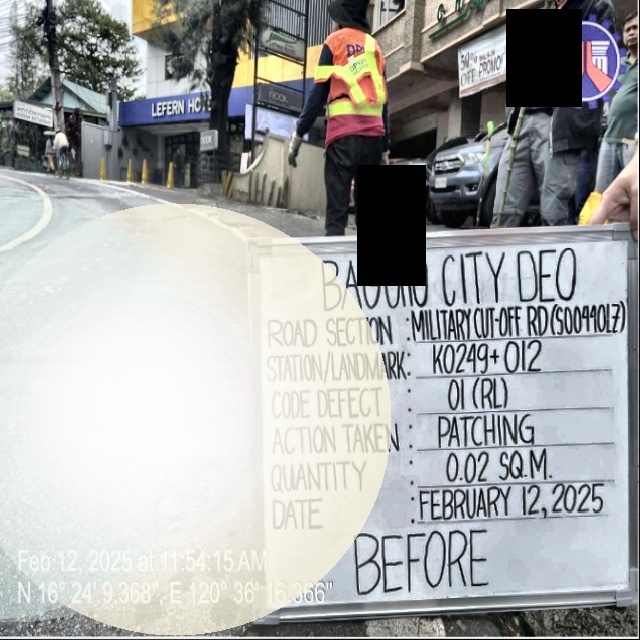 LEFERN HO
NOOK
50%
OFF PROMO
BAGUIO CITY DEO
ROAD SECTION : MILITARY CUT-OFF RD (S00440LZ)
STATION/LANDMARK: K0249+012
CODE DEFECT : 01 (RL)
ACTION TAKEN : PATCHING
QUANTITY : 0.02 SQ.M.
DATE : FEBRUARY 12, 2025
BEFORE
Feb 12, 2025 at 11:54:15 AM
N 16° 24' 9.368", E 120° 36' 16.366"